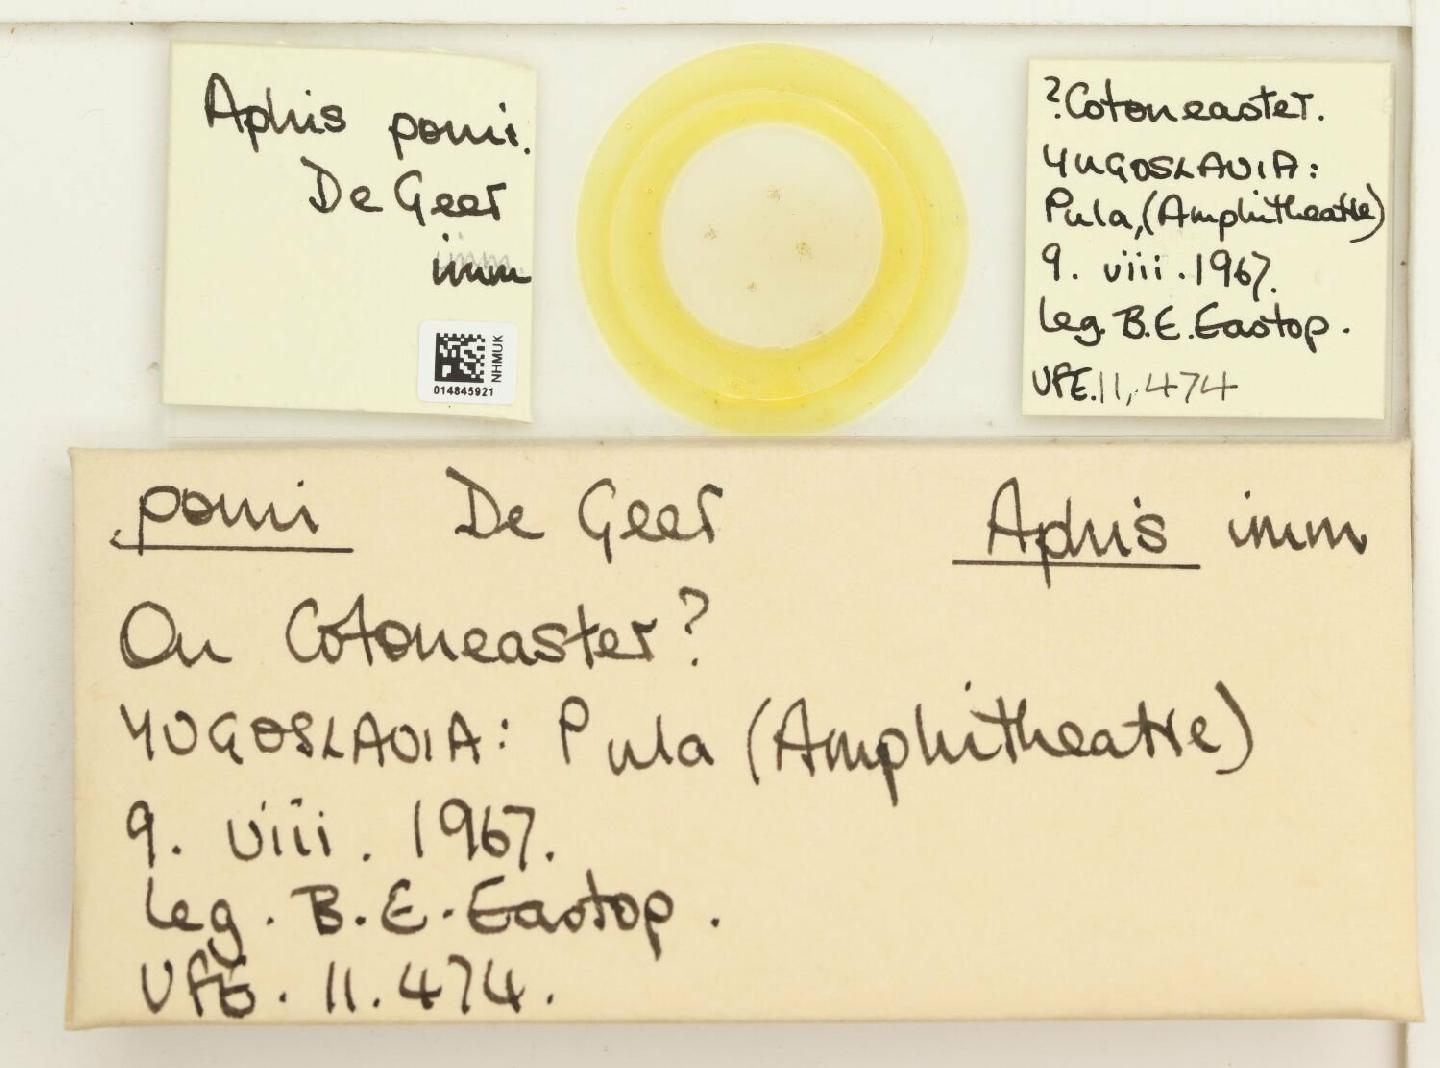 Aphis pomi.
De Geer
imm
imm
NHMUK
014845921
?Cotoneaster.
YUGOSLAVIA:
Pula, (Amphitheatre)
9. viii. 1967.
leg. B.E. Eastop.
VFE. 11,474
pomi De Geer Aphis imm
On Cotoneaster?
YUGOSLAVIA: Pula (Amphitheatre)
9. viii. 1967.
leg. B.E. Eastop.
VFE. 11.474.